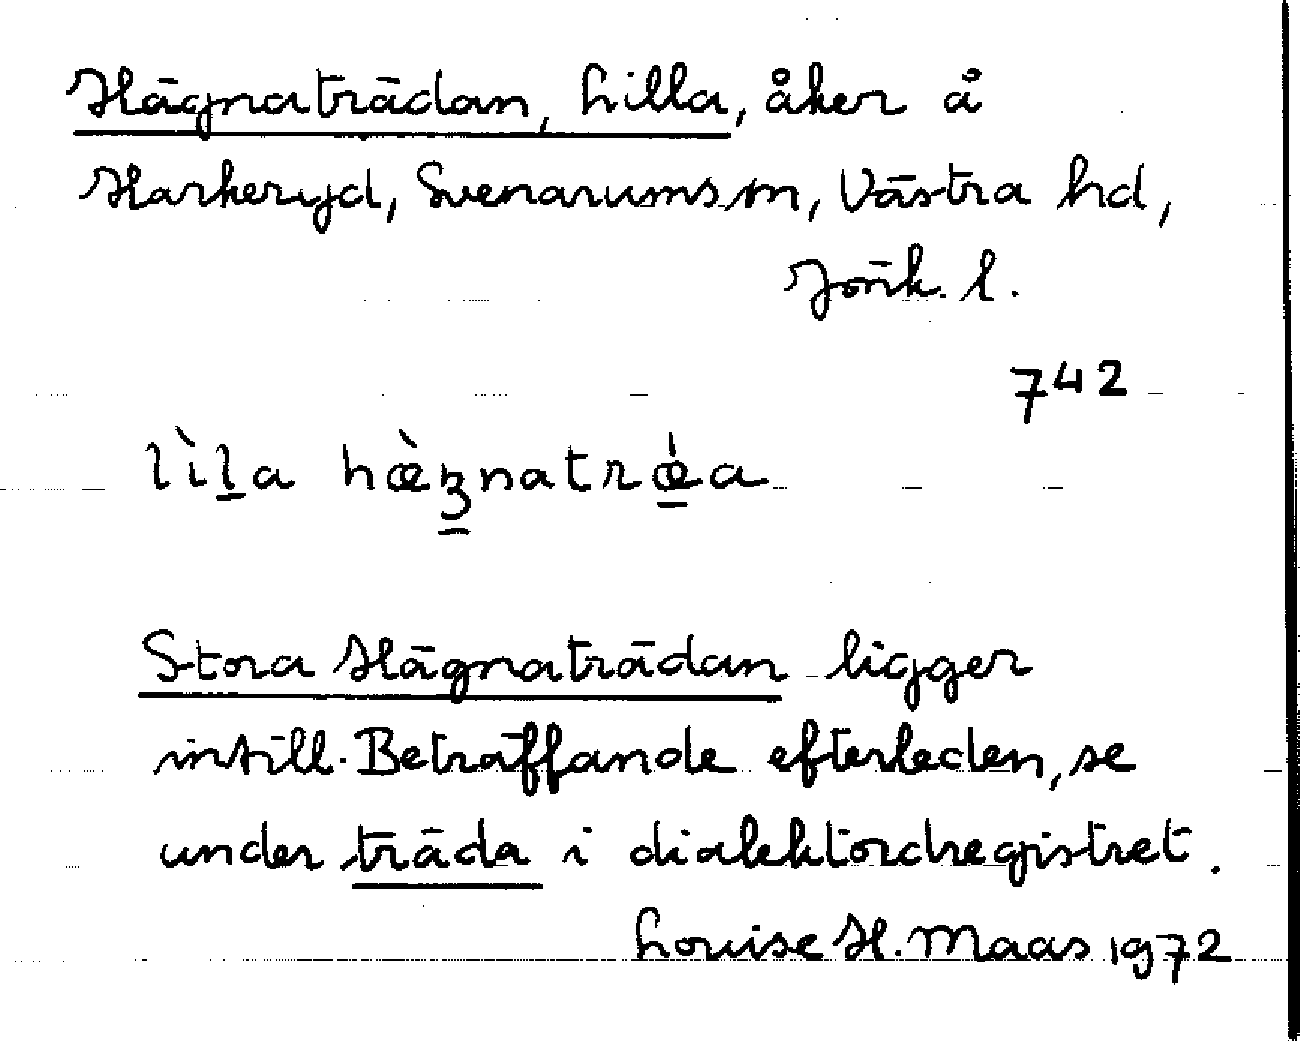 Hägnaträdan, Lilla, åker å
Harkeryd, Svenarums sn, Västra hd,
Jönk. l.
742
lìl̠a hœ̀ʒ̳natrœ̠̀a
Stora Hägnaträdan ligger
intill. Beträffande efterleden, se
under träda i dialektordregistret.
Louise H. Maas 1972